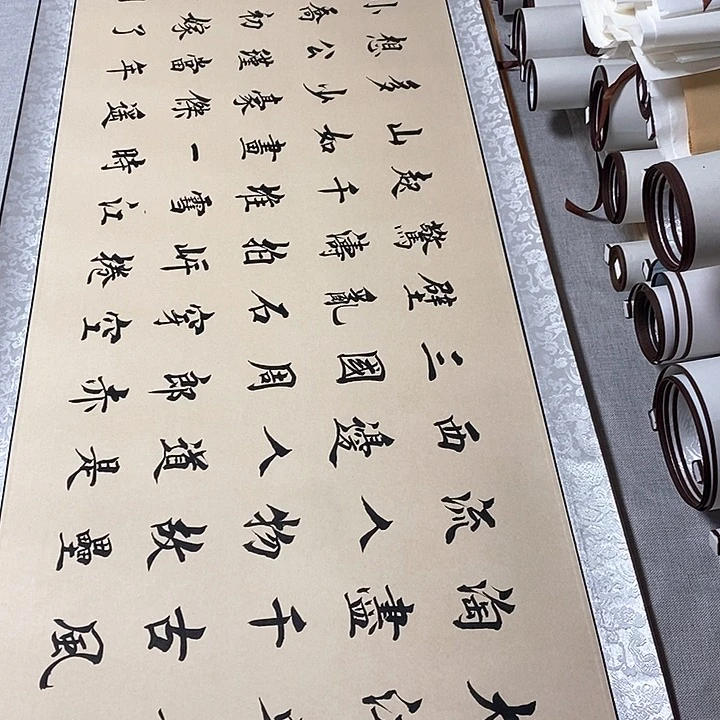 大江
淘盡千古風
流人物故壘
西邊人道是
三國周郎赤
壁亂石穿空
驚濤拍岸捲
起千堆雪江
山如畫一時
多少豪傑遙
想公瑾當年
小喬初嫁了